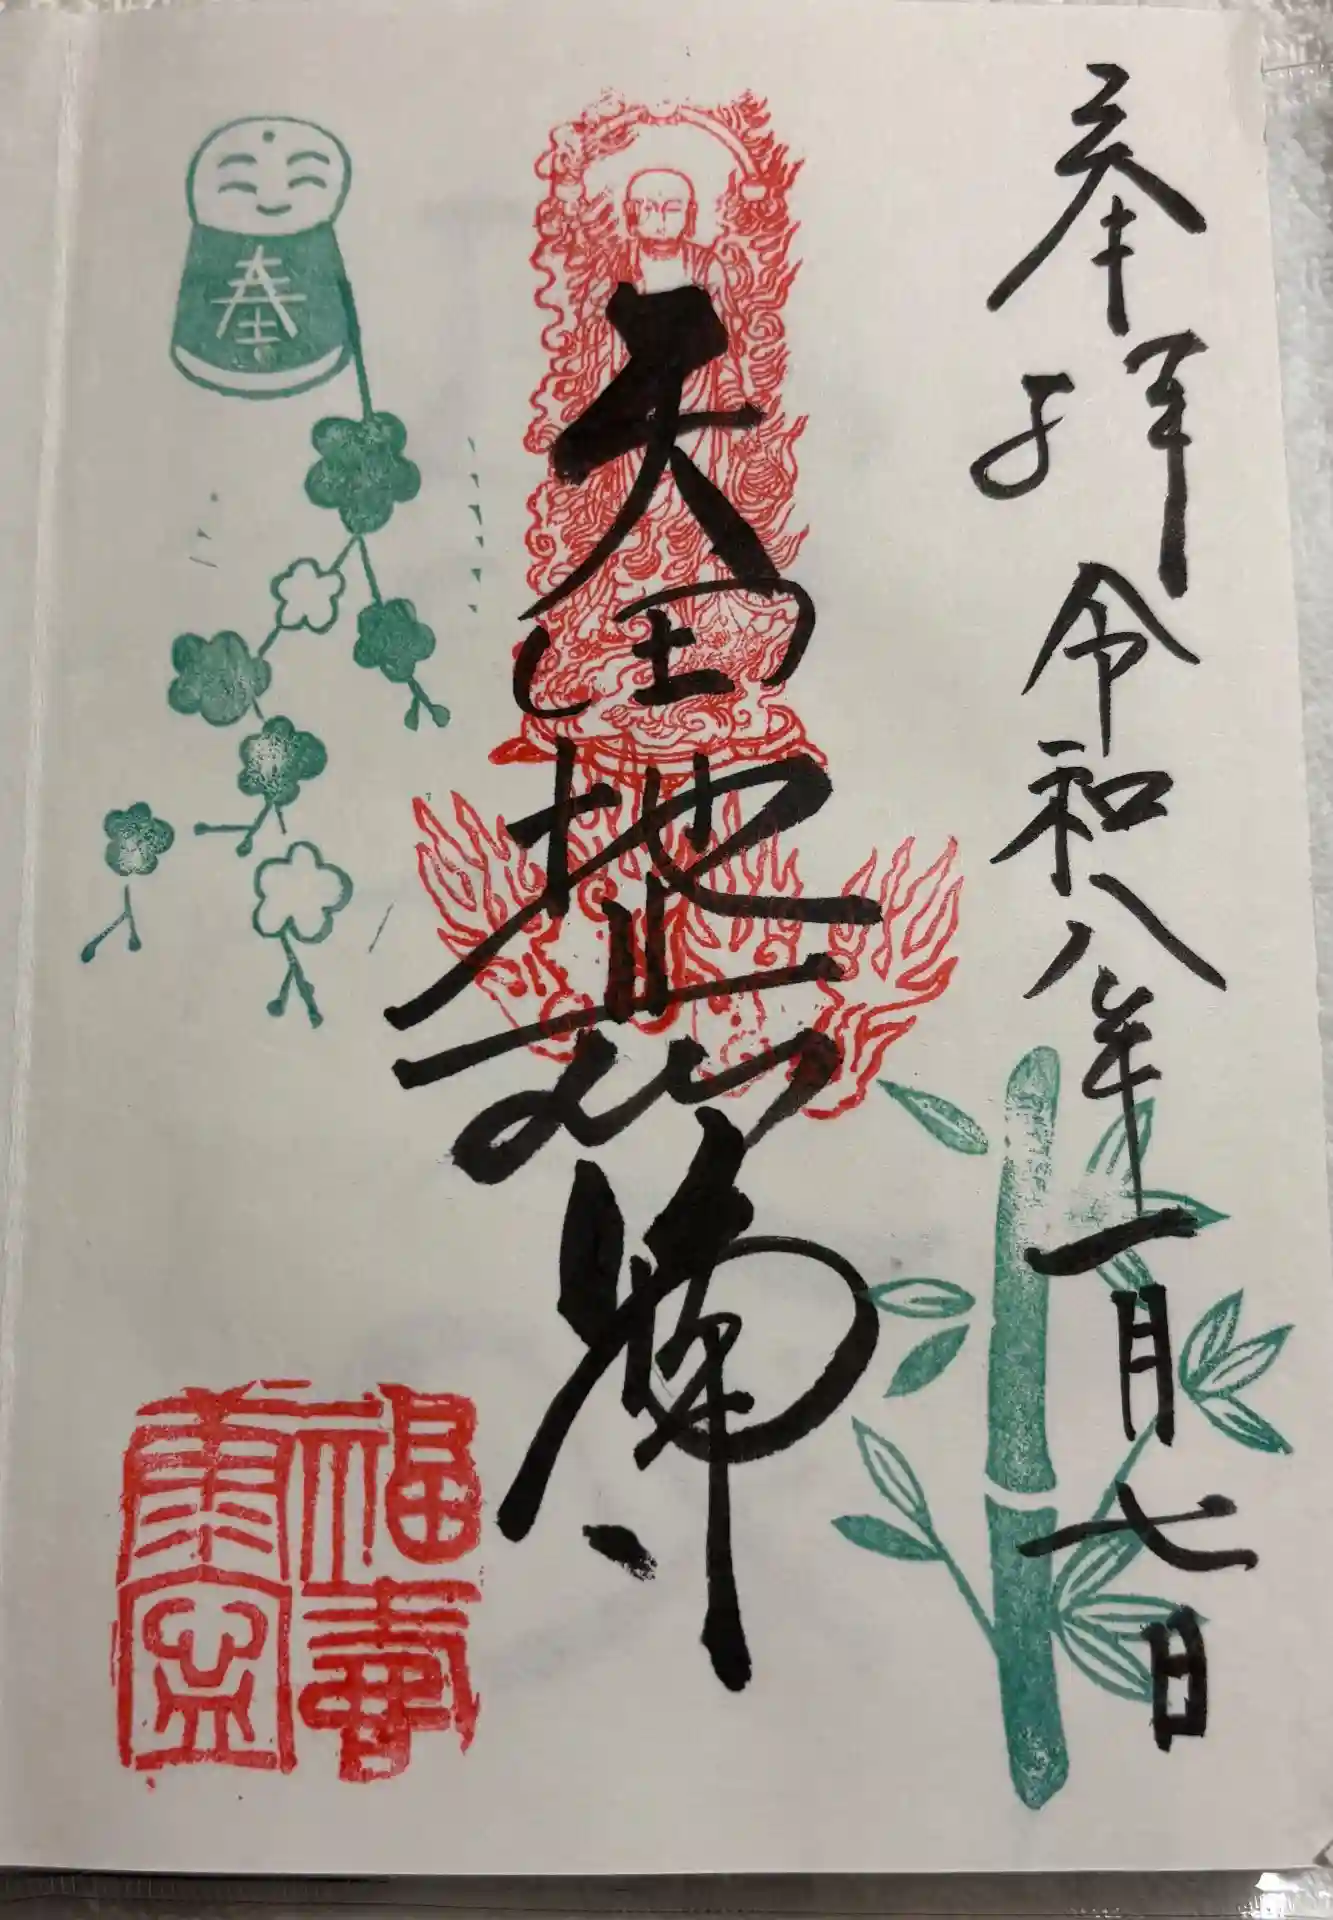 奉拝 令和八年一月七日
矢田地蔵尊
奉
福壽
康寧